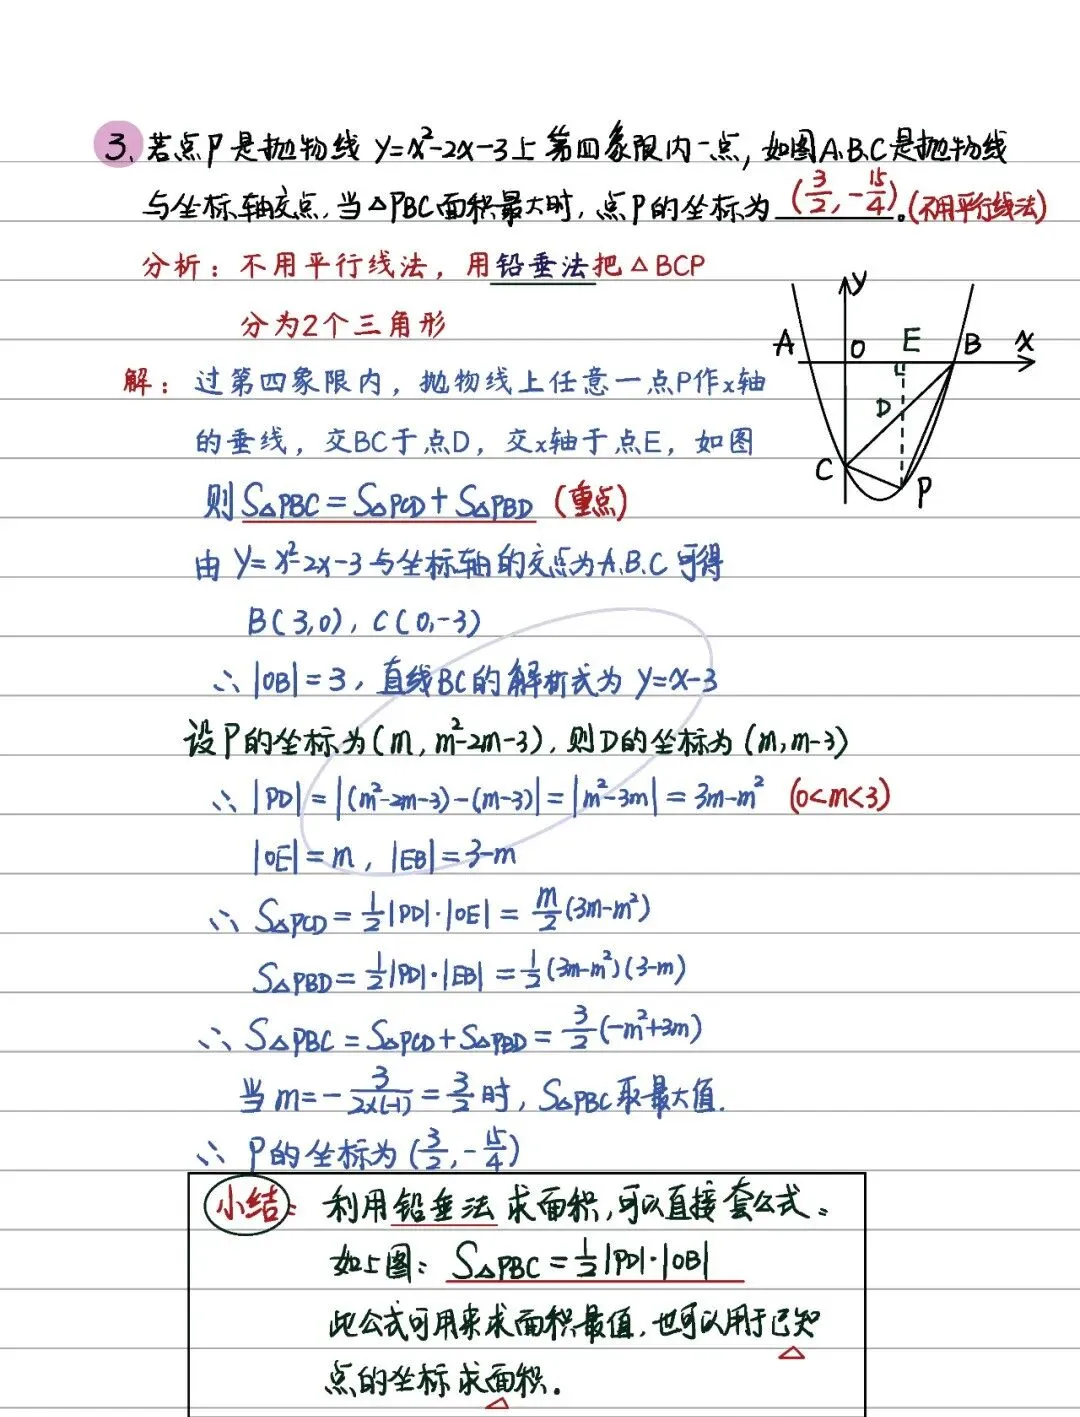 3、若点P是抛物线 y=x²-2x-3上第四象限内一点，如图A、B、C是抛物线
与坐标轴交点，当△PBC面积最大时，点P的坐标为 (3/2, -15/4)。(不用平行线法)
分析：不用平行线法，用铅垂法把△BCP
分为2个三角形
y
A O E B x
D
C P
解：过第四象限内，抛物线上任意一点P作x轴
的垂线，交BC于点D，交x轴于点E，如图
则 S△PBC = S△PCD + S△PBD (重点)
由 y=x²-2x-3 与坐标轴的交点为A、B、C 可得
B(3,0), C(0,-3)
∴ |OB|=3，直线BC的解析式为 y=x-3
设P的坐标为(m, m²-2m-3)，则D的坐标为(m, m-3)
∴ |PD|=|(m²-2m-3)-(m-3)|=|m²-3m|=3m-m² (0<m<3)
|OE|=m, |EB|=3-m
∴ S△PCD=1/2|PD|·|OE|=m/2(3m-m²)
S△PBD=1/2|PD|·|EB|=1/2(3m-m²)(3-m)
∴ S△PBC=S△PCD+S△PBD=3/2(-m²+3m)
当 m=-3/(2×(-1))=3/2时，S△PBC取最大值.
∴ P的坐标为(3/2, -15/4)
小结：利用铅垂法求面积，可以直接套公式。
如上图：S△PBC=1/2|PD|·|OB|
此公式可用来求面积最值，也可以用于已知
点的坐标求面积.